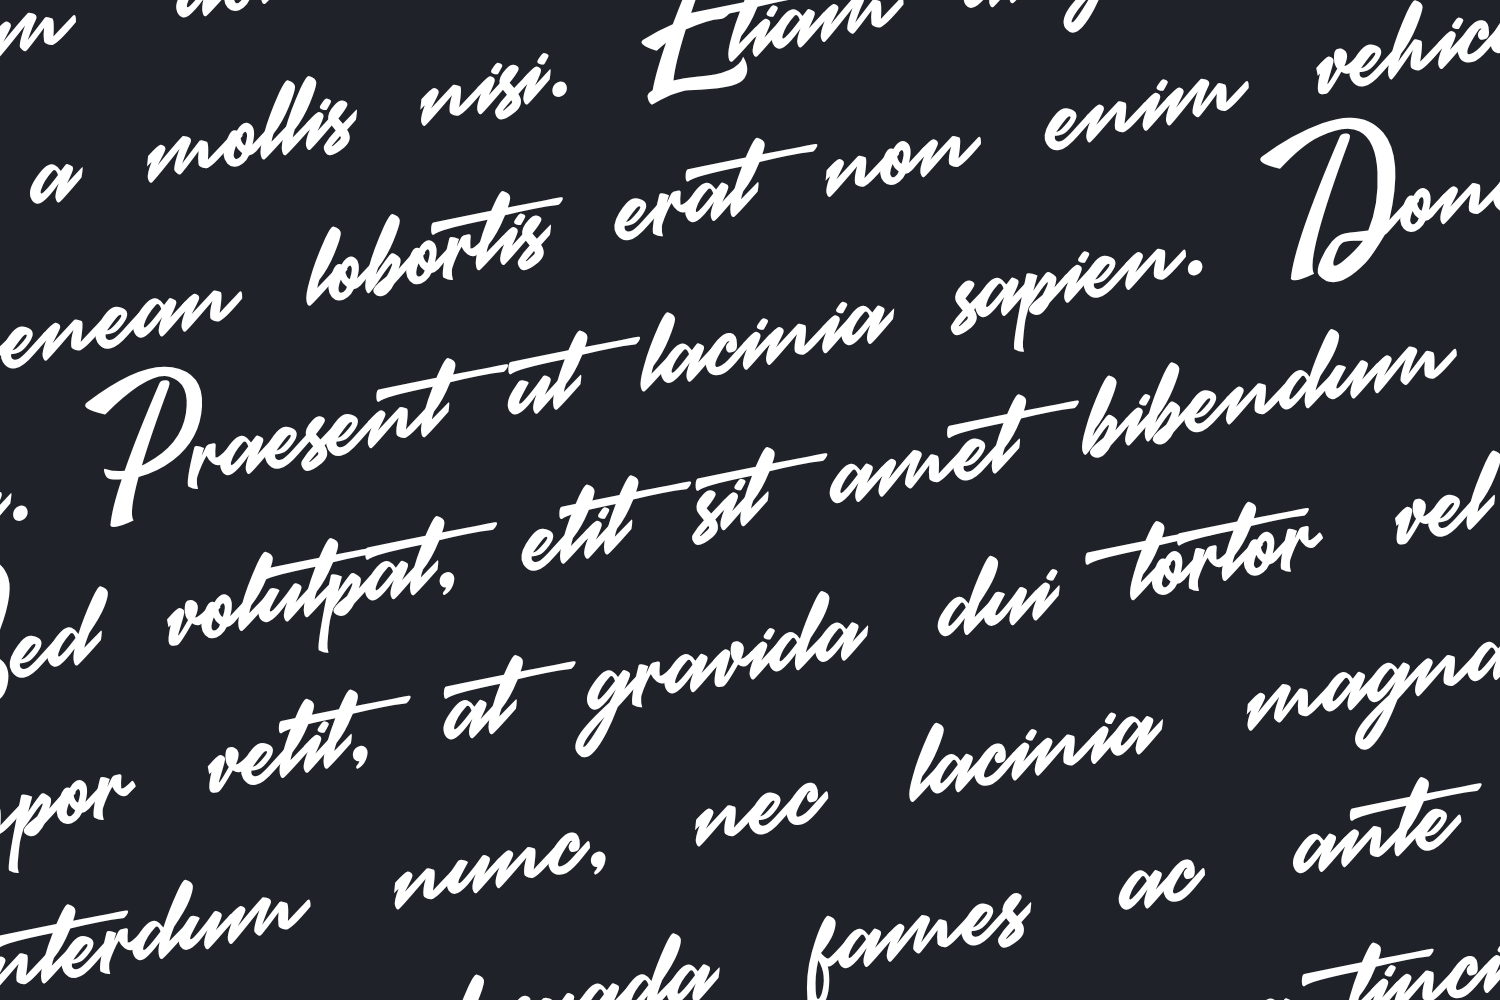 a mollis nisi. Etiam
enean lobortis erat non enim vehic
. Praesent ut lacinia sapien. Done
Sed volutpat, elit sit amet bibendum
por velit, at gravida dui tortor vel
nterdum nunc, nec lacinia magna
fames ac ante
tinci